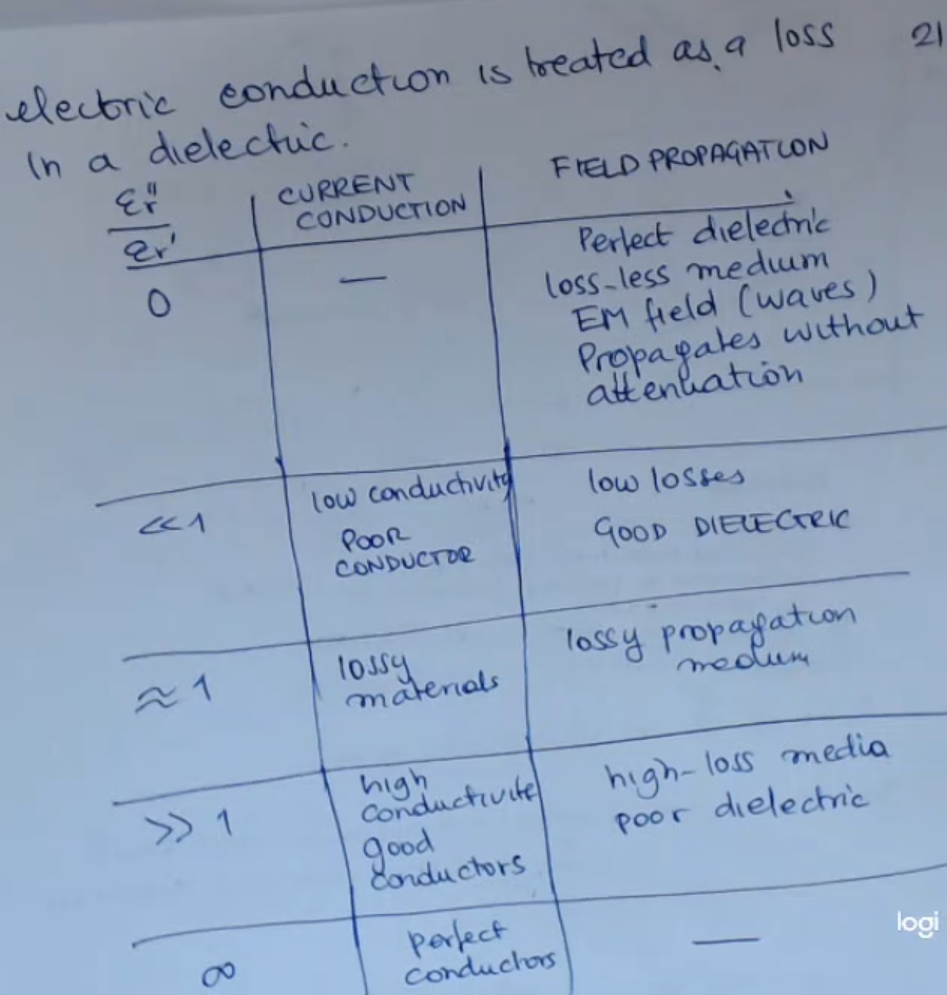 electric conduction is treated as a loss 21
in a dielectric.
εr'' / εr' CURRENT CONDUCTION FIELD PROPAGATION
0 — Perfect dielectric
loss-less medium
EM field (waves)
Propagates without
attenuation
<<1 low conductivity low losses
POOR GOOD DIELECTRIC
CONDUCTOR
≈1 lossy lossy propagation
materials medium
>>1 high high-loss media
conductivite poor dielectric
good
conductors
∞ perfect —
conductors
logi